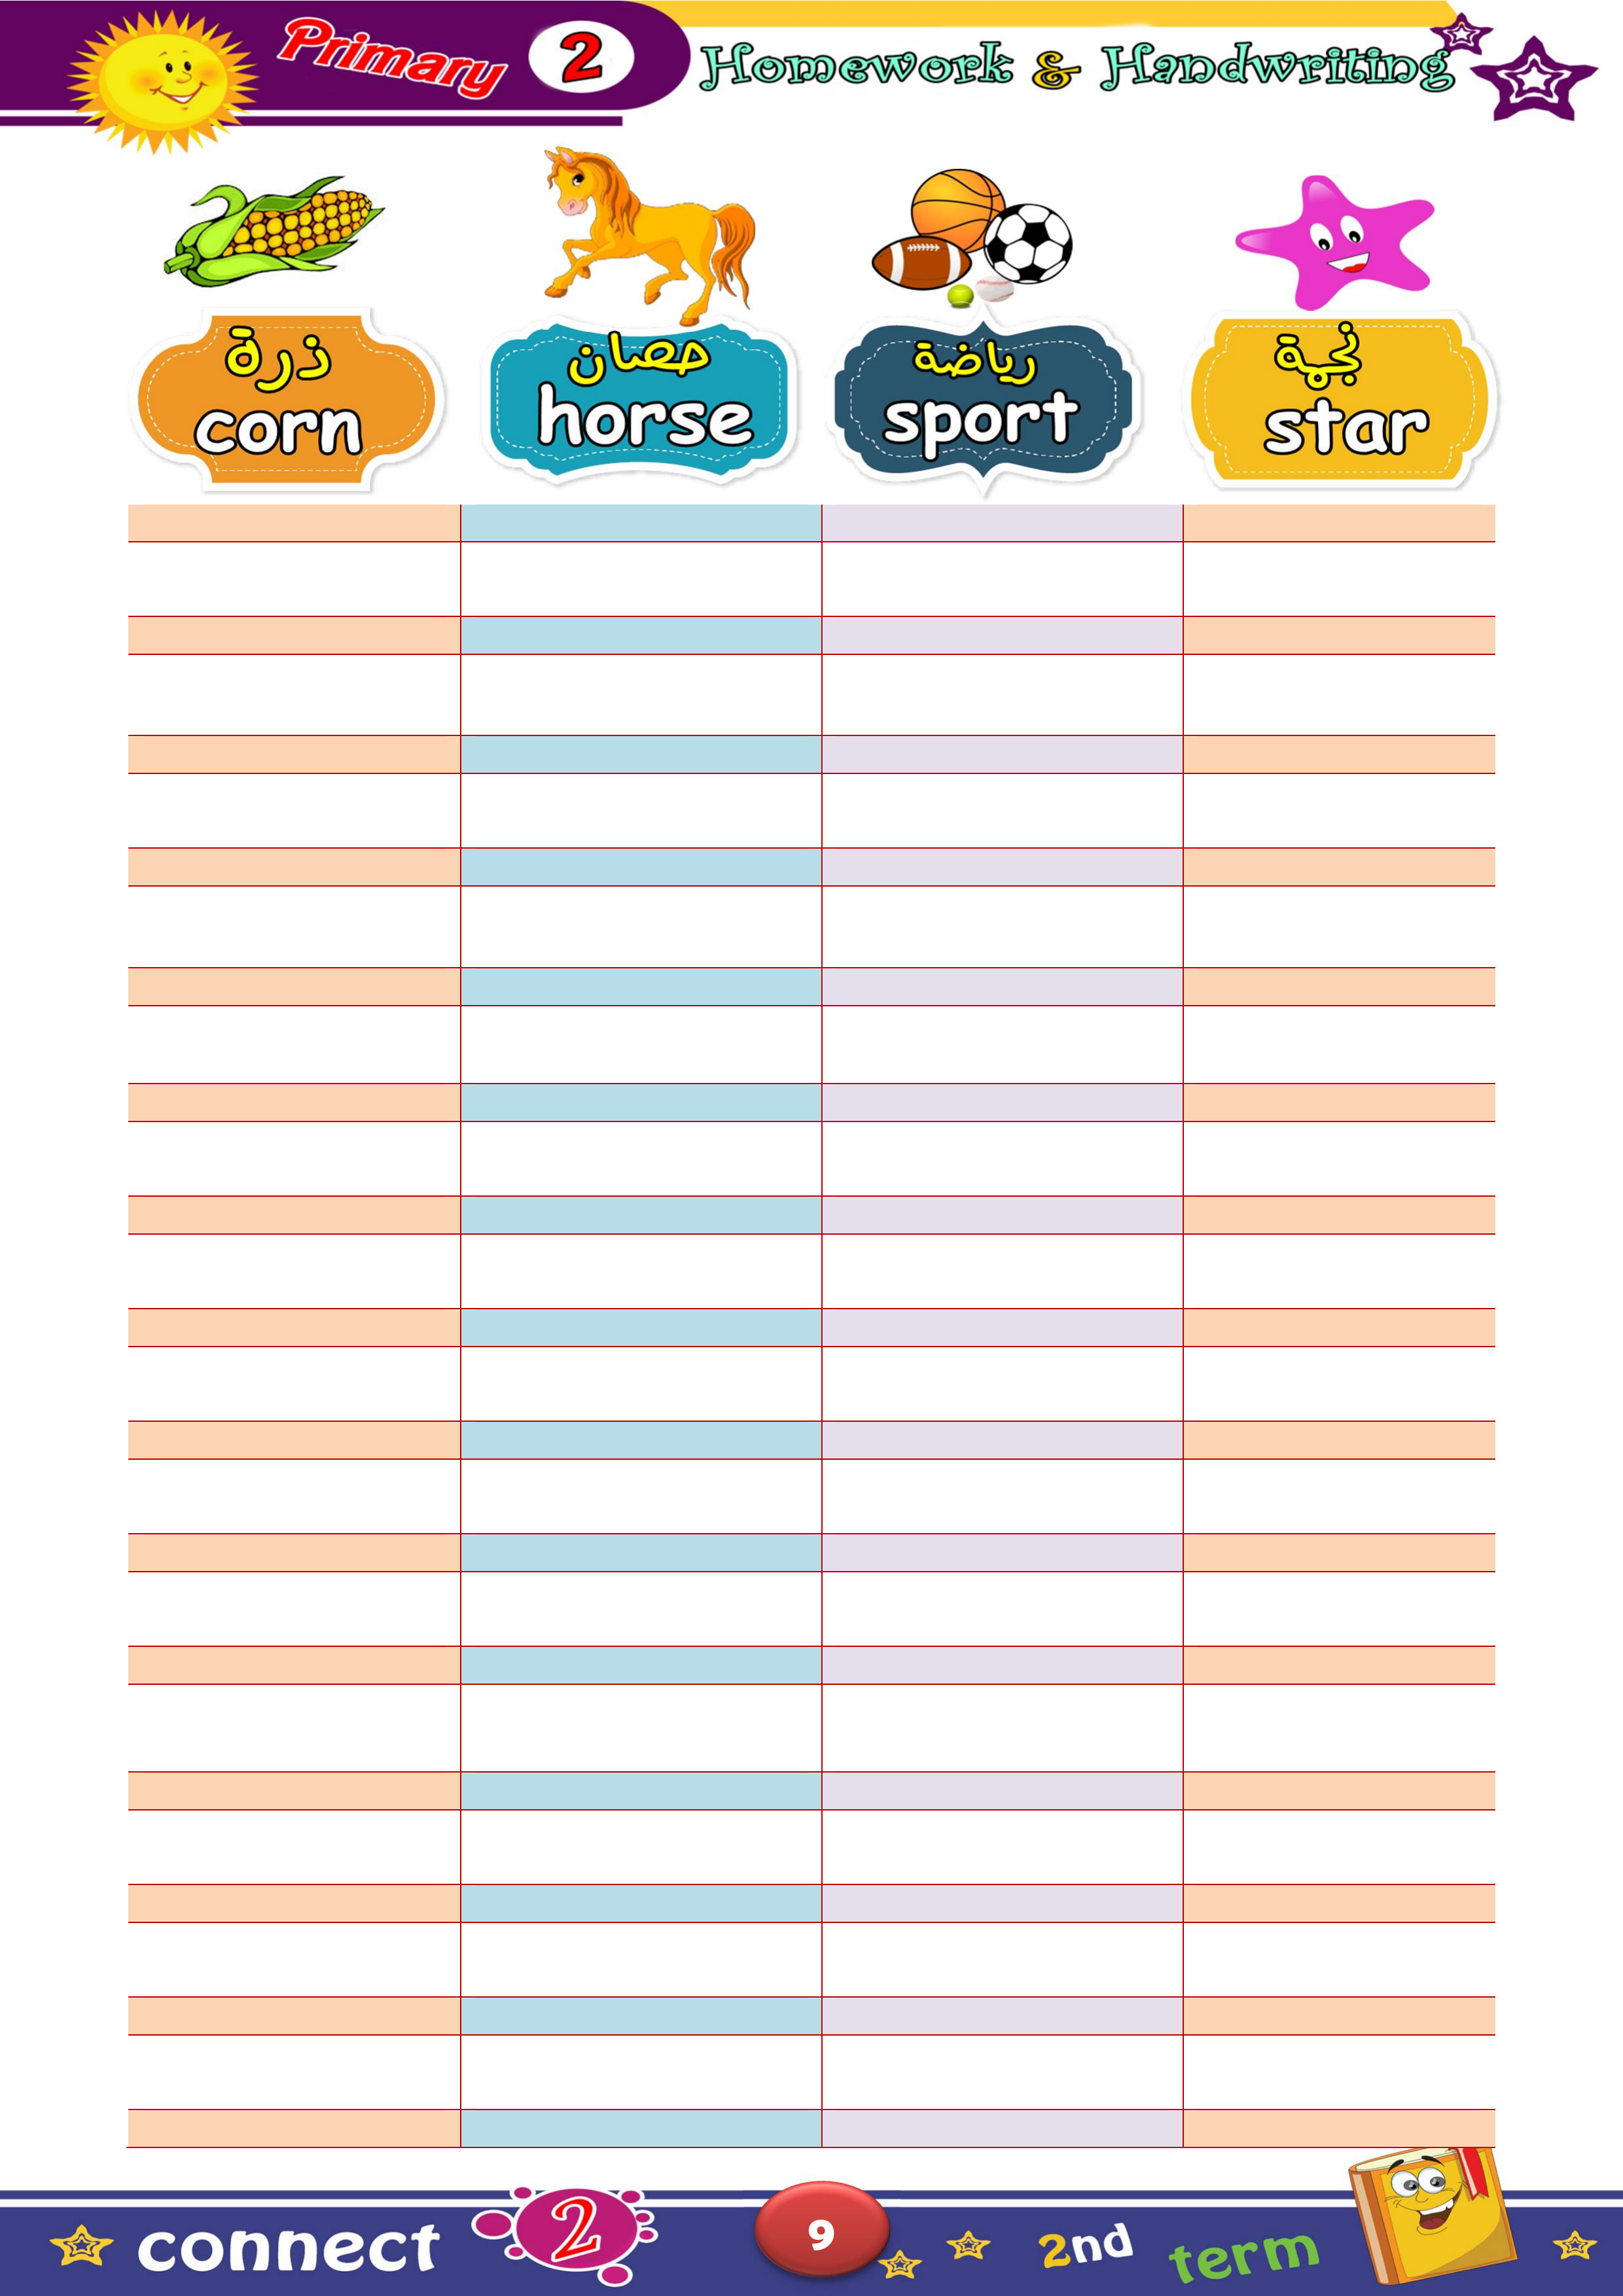 Primary 2 Homework & Handwriting
ذرة
corn
حصان
horse
رياضة
sport
نجمة
star
connect 2 9 2nd term